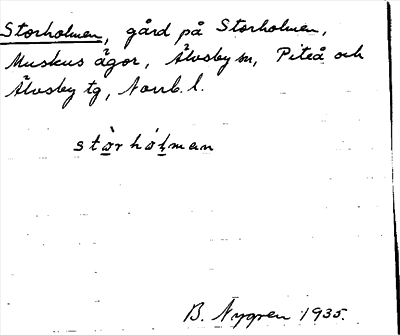 Storholmen, gård på Storholmen,
Muskus ägor, Älvsby sn, Piteå och
Älvsby tg, Norrb. l.
stòrhólman
B. Nygren 1935.